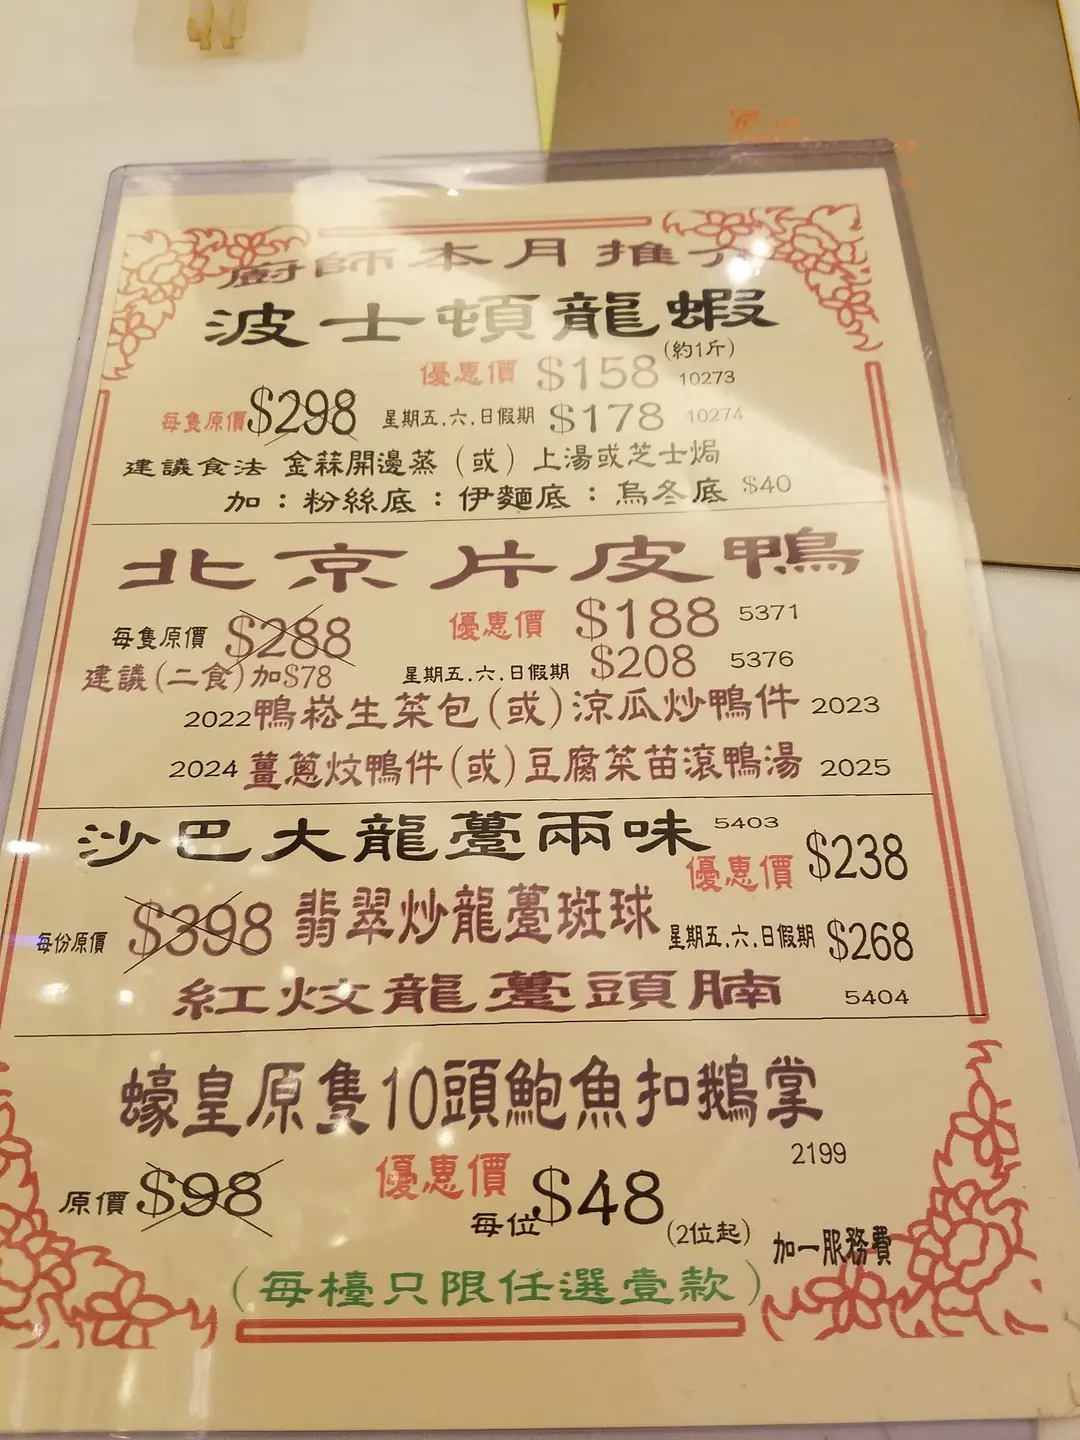 廚師本月推介
波士頓龍蝦
(約1斤)
優惠價 $158 10273
每隻原價 $298 星期五.六.日假期 $178 10274
建議食法 金蒜開邊蒸(或)上湯或芝士焗
加:粉絲底:伊麵底:烏冬底 $40
北京片皮鴨
每隻原價 $288 優惠價 $188 5371
建議(二食)加$78 星期五.六.日假期 $208 5376
2022 鴨崧生菜包(或)涼瓜炒鴨件 2023
2024 薑蔥炆鴨件(或)豆腐菜苗滾鴨湯 2025
沙巴大龍躉兩味 5403
優惠價 $238
每份原價 $398 翡翠炒龍躉斑球 星期五.六.日假期 $268
紅炆龍躉頭腩 5404
蠔皇原隻10頭鮑魚扣鵝掌
2199
原價 $98 優惠價 每位 $48 (2位起) 加一服務費
(每檯只限任選壹款)